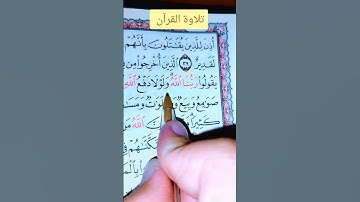 تلاوة القرآن
أُذِنَ لِلَّذِينَ يُقَٰتَلُونَ بِأَنَّهُمْ
لَقَدِيرٌ ٣٩ ٱلَّذِينَ أُخْرِجُوا۟ مِن
يَقُولُوا۟ رَبُّنَا ٱللَّهُ وَلَوْلَا دَفْعُ ٱللَّهِ
صَوَٰمِعُ وَبِيَعٌ
كَثِيرًا ٱللَّهُ